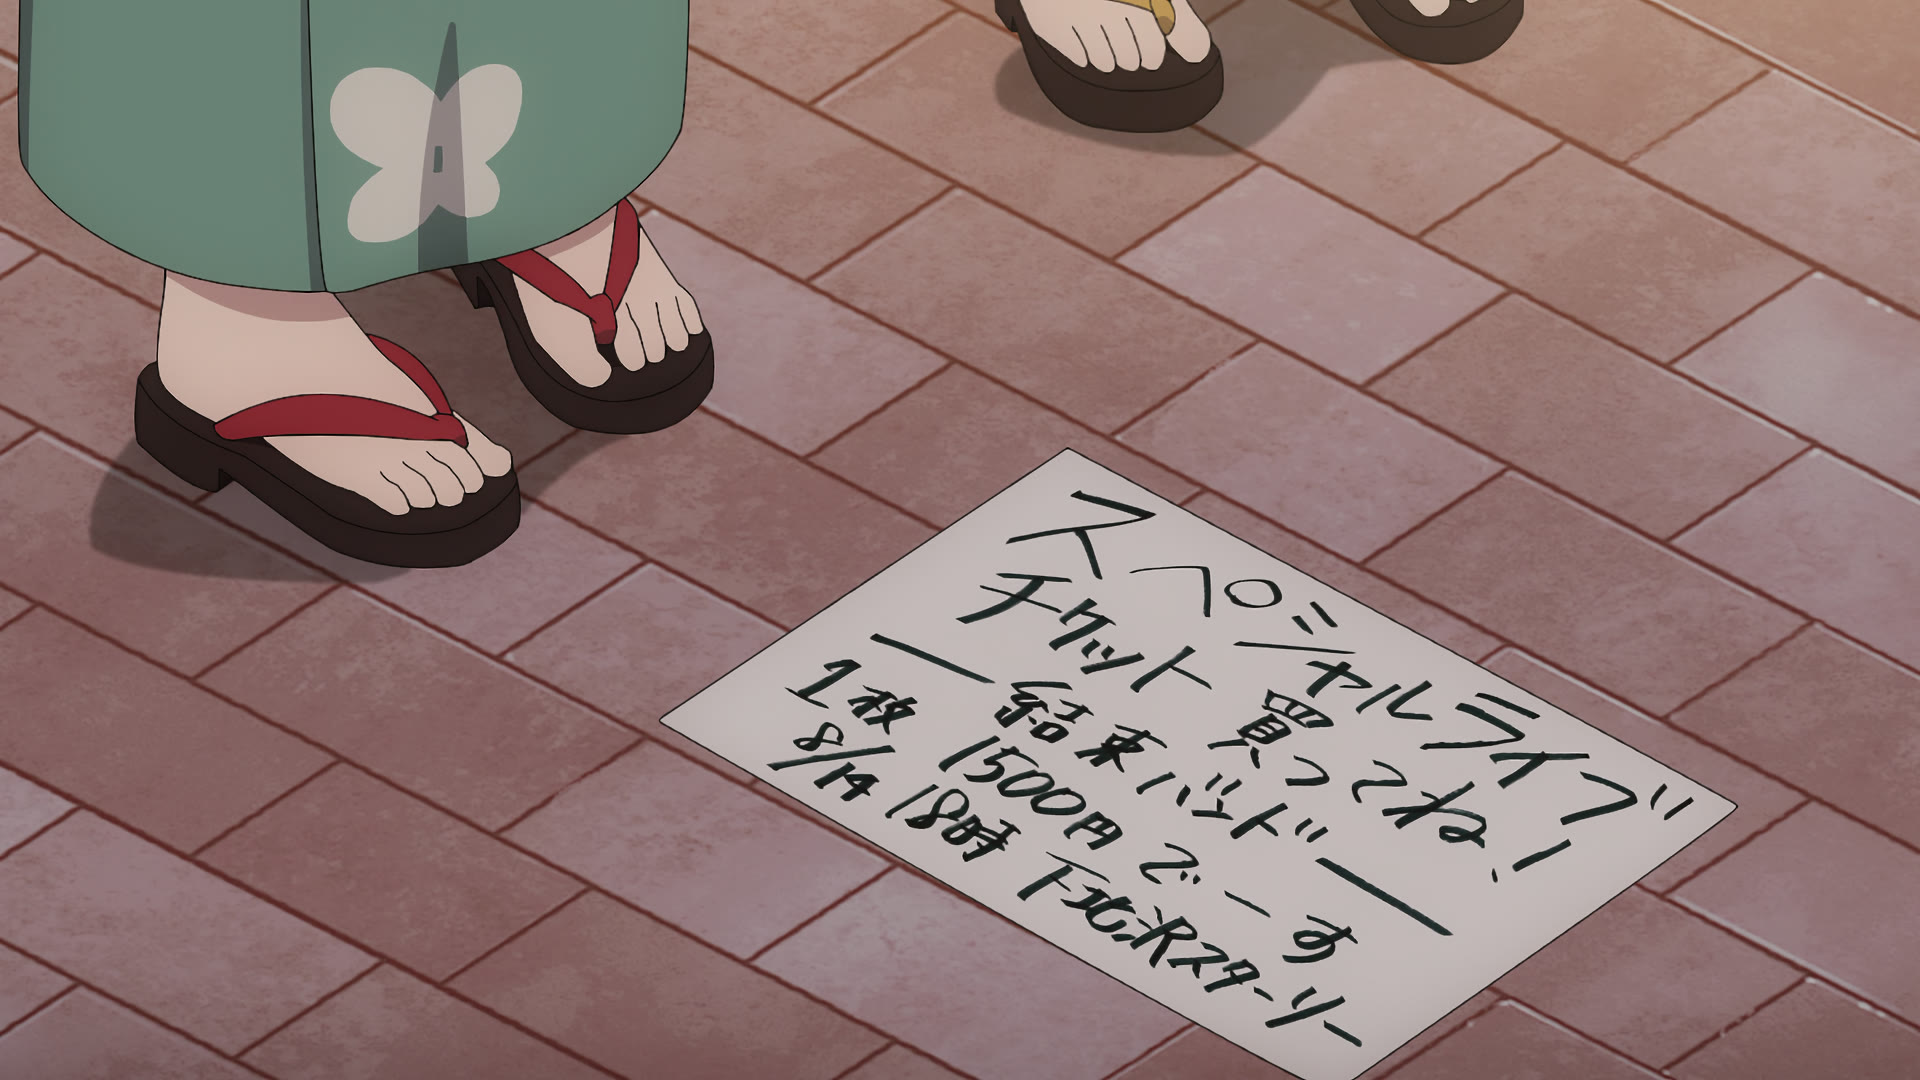 スペシャルライブ
チケット 買ってね！
― 結束バンド ―
1枚 1500円 でーす
8/14 18時 下北沢スターリー